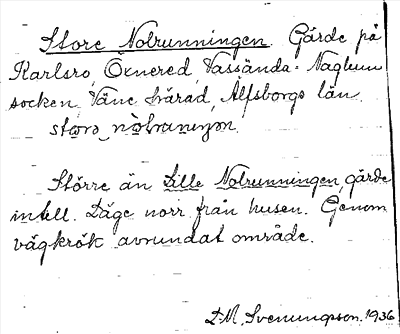 Store Nolrunningen. Gärde på
Karlsro, Öxnered, Vassända-Naglum
socken, Väne härad, Älfsborgs län.
Större än Lille Nolrunningen, gärde
intill. Läge norr från husen. Genom
vägkrök avrundat område.
D.M. Svenungsson. 1936